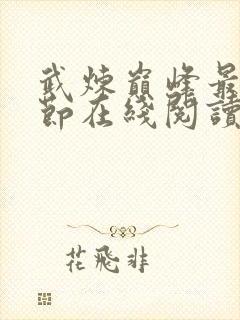 武煉巔峰最
節在綫閱讀
花飛非